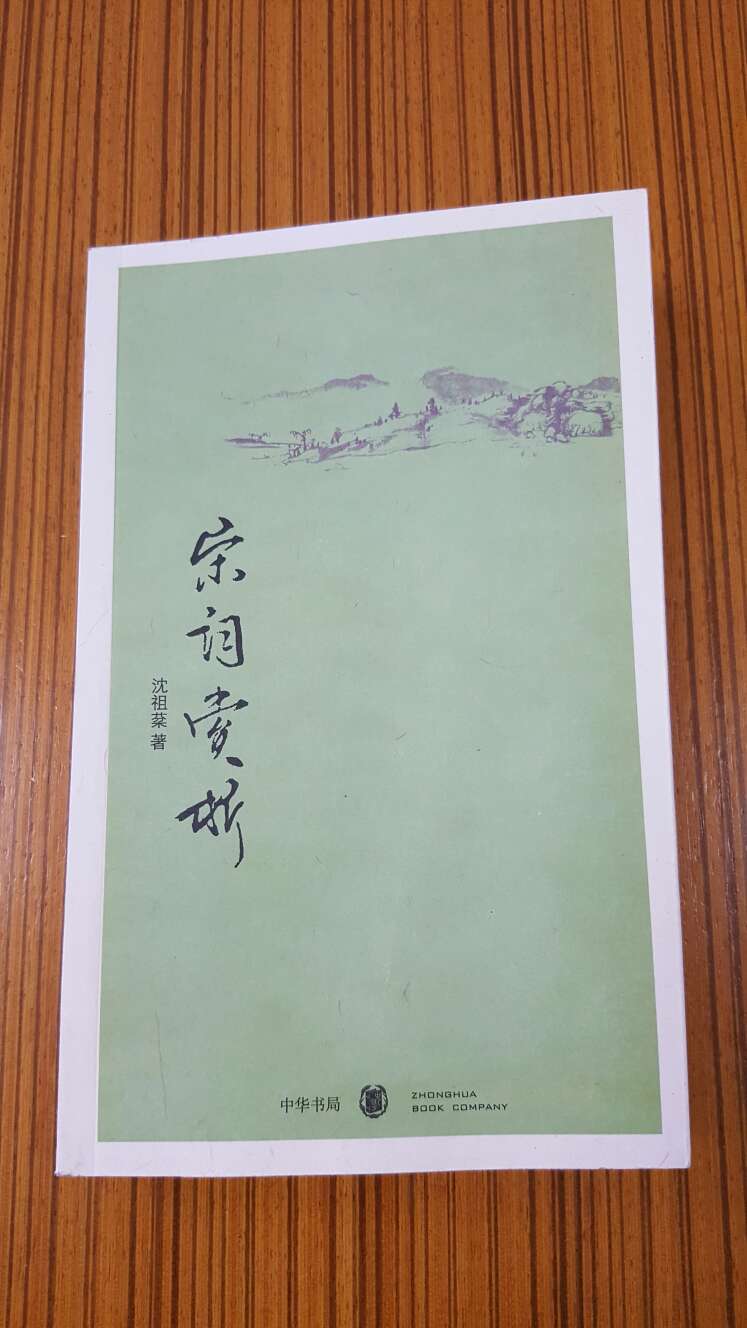 宋词赏析
沈祖棻 著
中华书局
ZHONGHUA
BOOK COMPANY